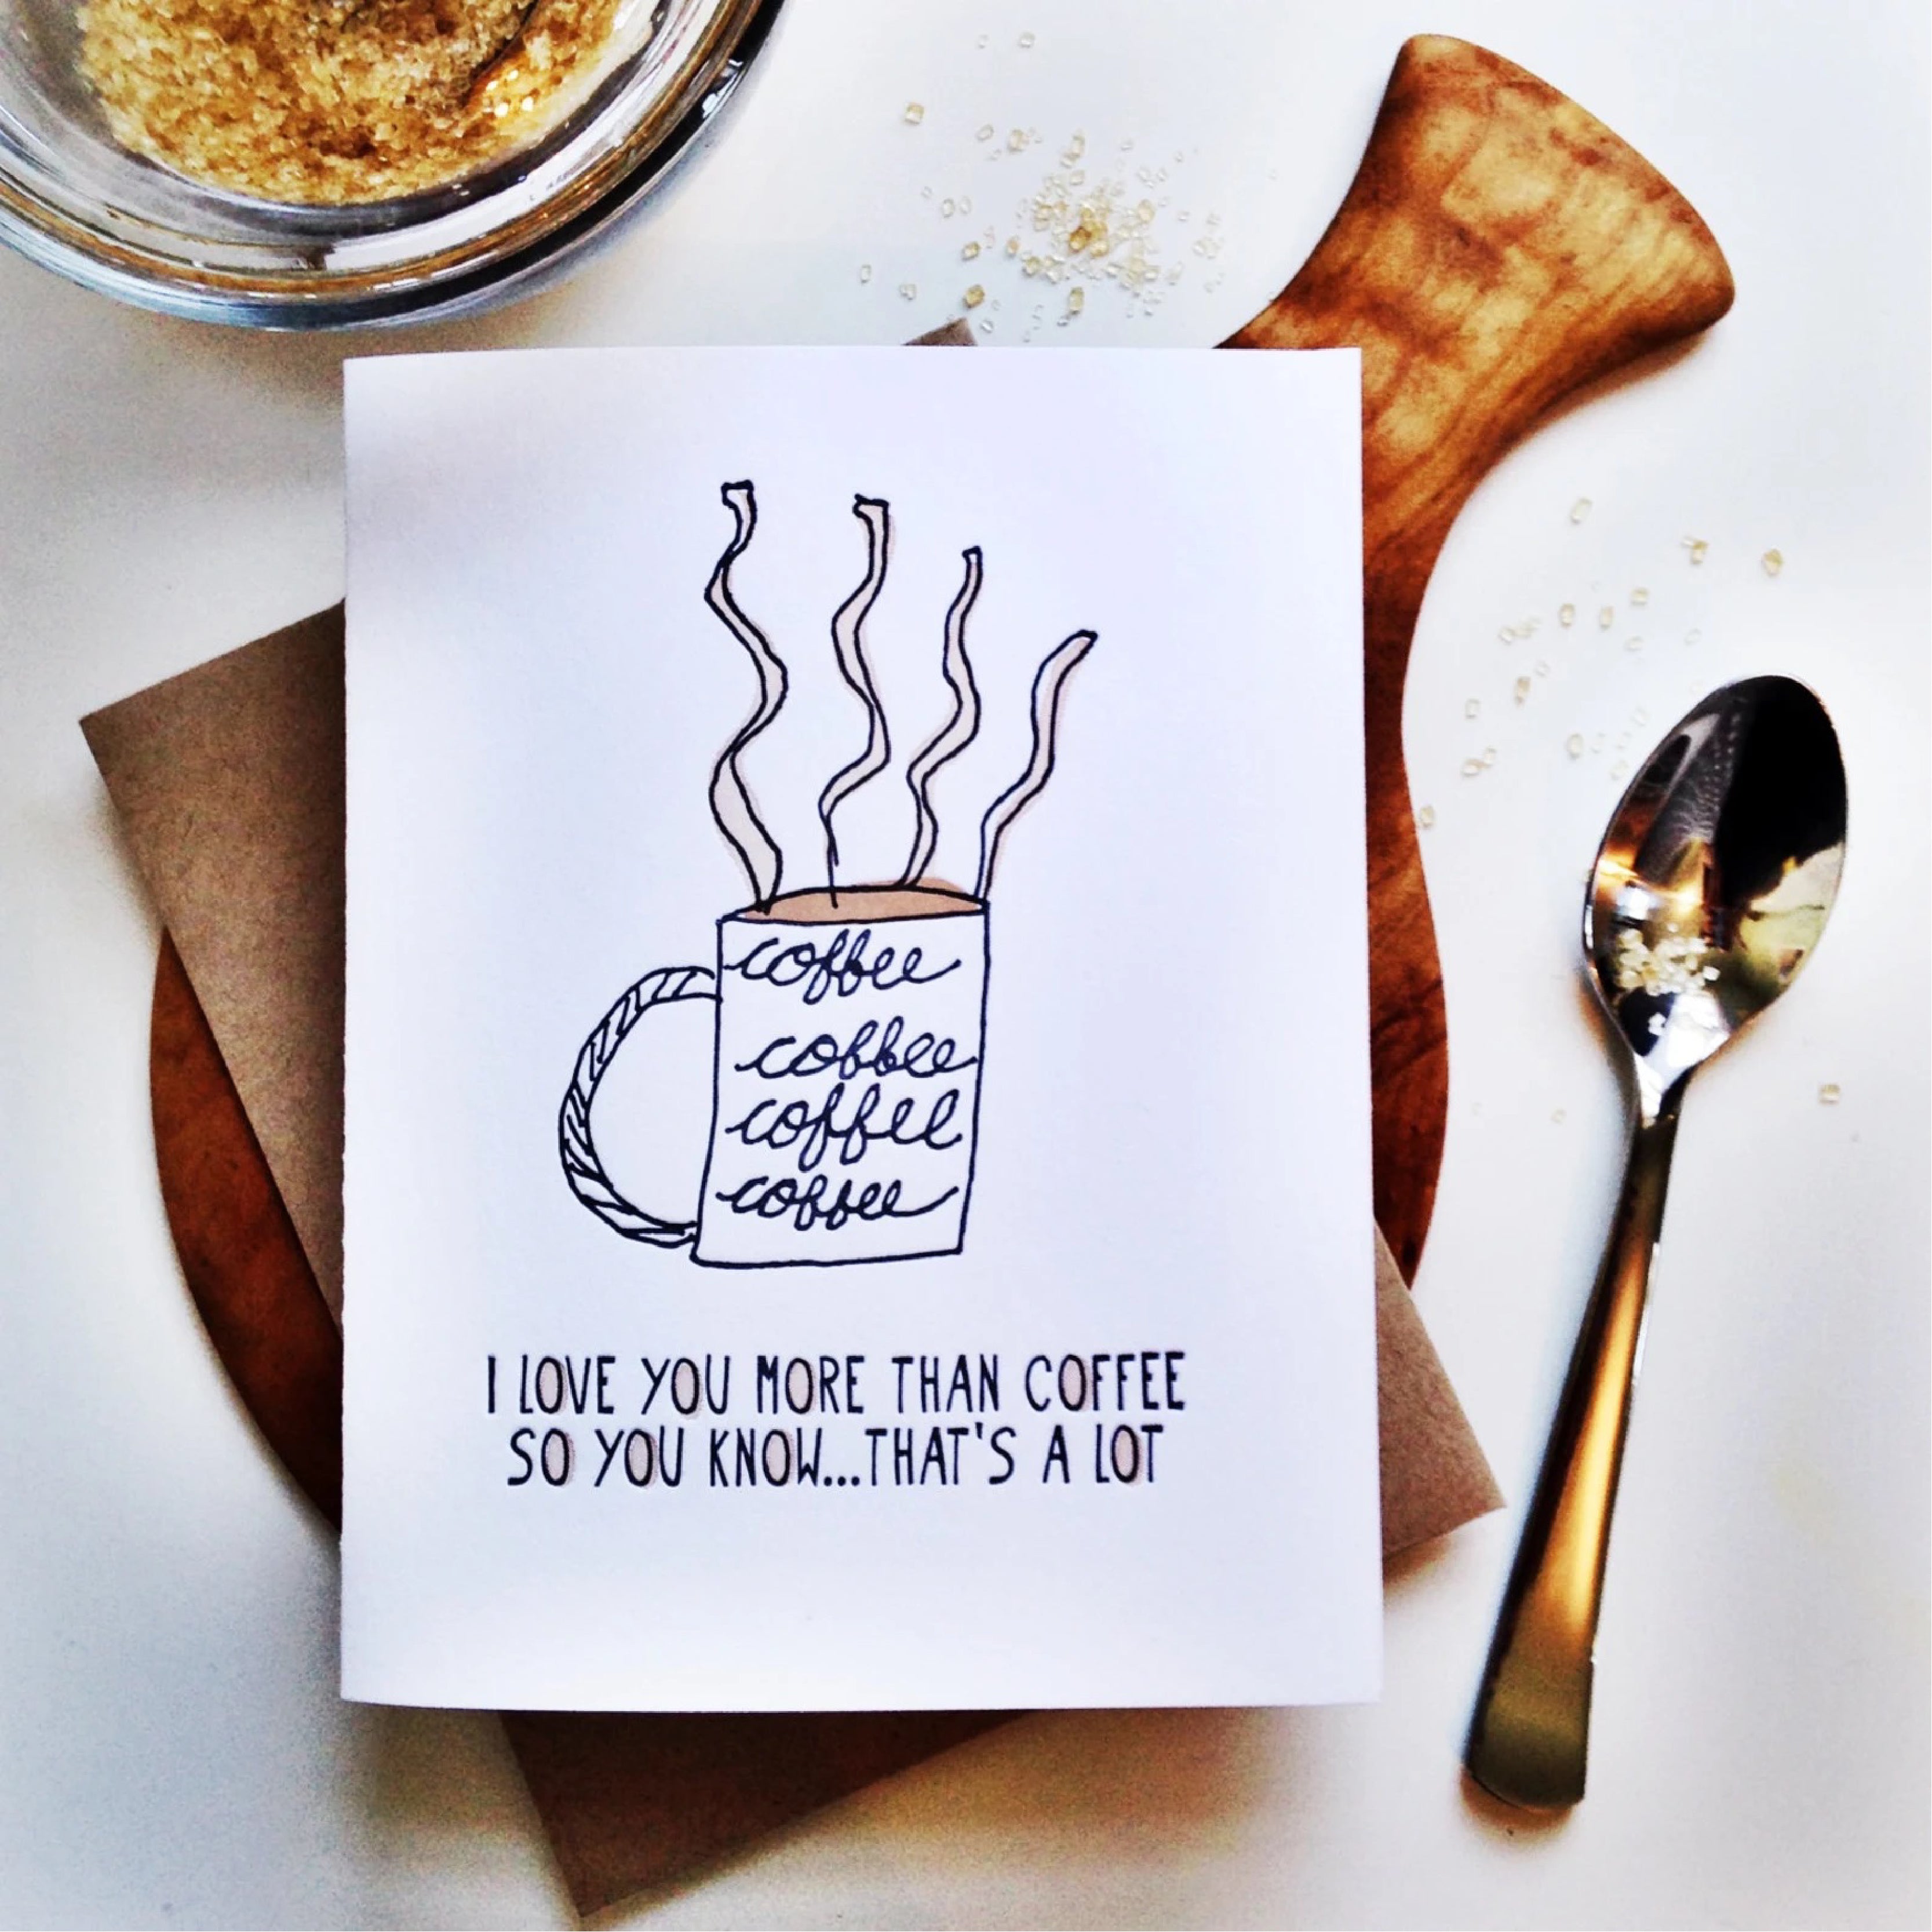 coffee
coffee
coffee
coffee
I LOVE YOU MORE THAN COFFEE
SO YOU KNOW...THAT'S A LOT